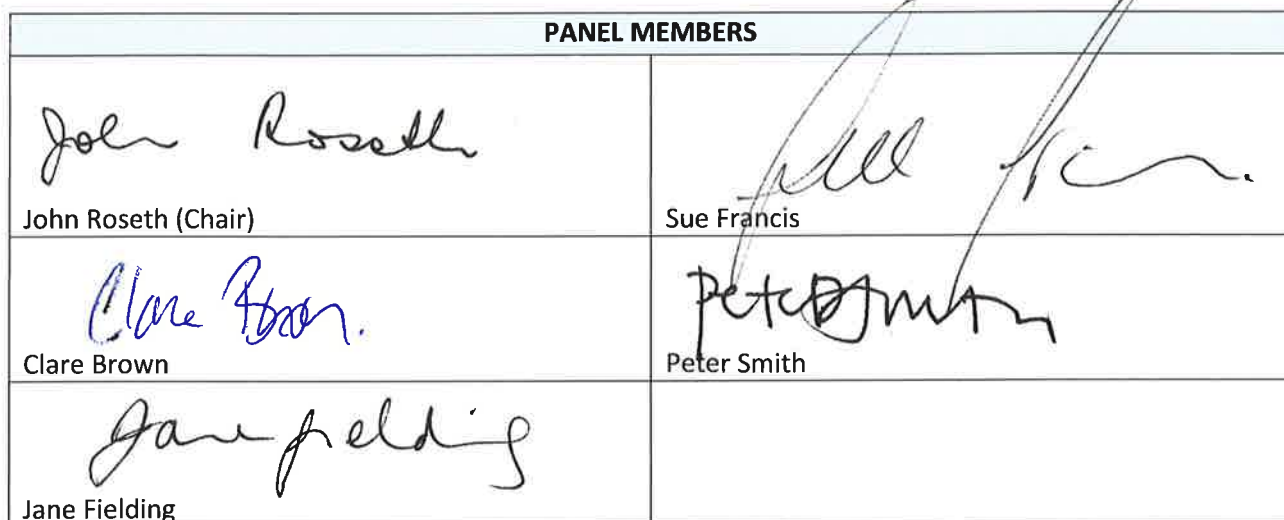 PANEL MEMBERS
John Roseth
John Roseth (Chair)
Sue Francis
Clare Brown.
Clare Brown
Peter Smith
Peter Smith
Jane Fielding
Jane Fielding